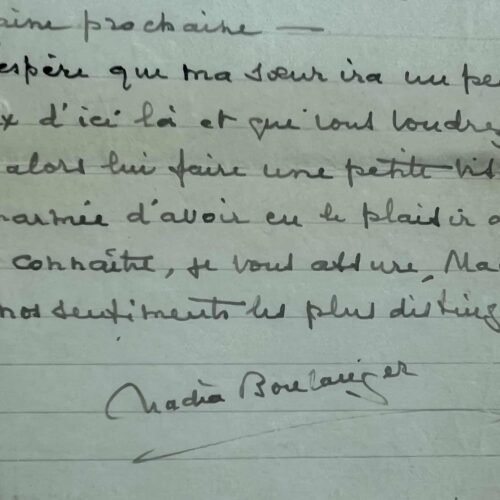 aine prochaine —
espère que ma sœur ira un pe
x d'ici là et que vous voudrez
alors lui faire une petite vis
harmée d'avoir eu le plaisir d
connaître, je vous assure, Ma
nos sentiments les plus disting
Nadia Boulanger